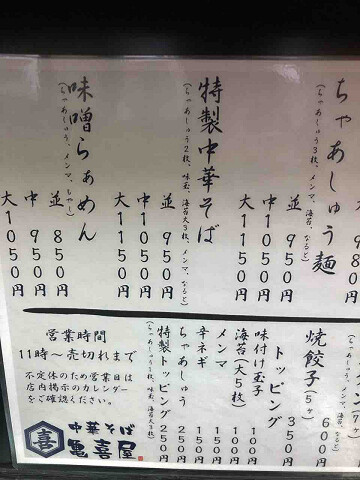 ちゃあしゅう麺
(ちゃあしゅう3枚、メンマ、海苔、なると)
並 950円
中1050円
大1150円
特製中華そば
(ちゃあしゅう2枚、味玉、海苔大3枚、メンマ、なると)
並 950円
中1050円
大1150円
味噌らぁめん
(ちゃあしゅう、メンマ、もやし)
並 850円
中 950円
大1050円
焼餃子(5ヶ)
350円
600円
トッピング
味付け玉子 100円
海苔(大5枚) 100円
メンマ 150円
辛ネギ 150円
ちゃあしゅう 250円
特製トッピング 250円
(ちゃあしゅう1枚、味玉、海苔大3枚)
営業時間
11時〜売切れまで
不定休のため営業日は
店内掲示のカレンダー
をご確認ください。
喜
中華そば
亀喜屋